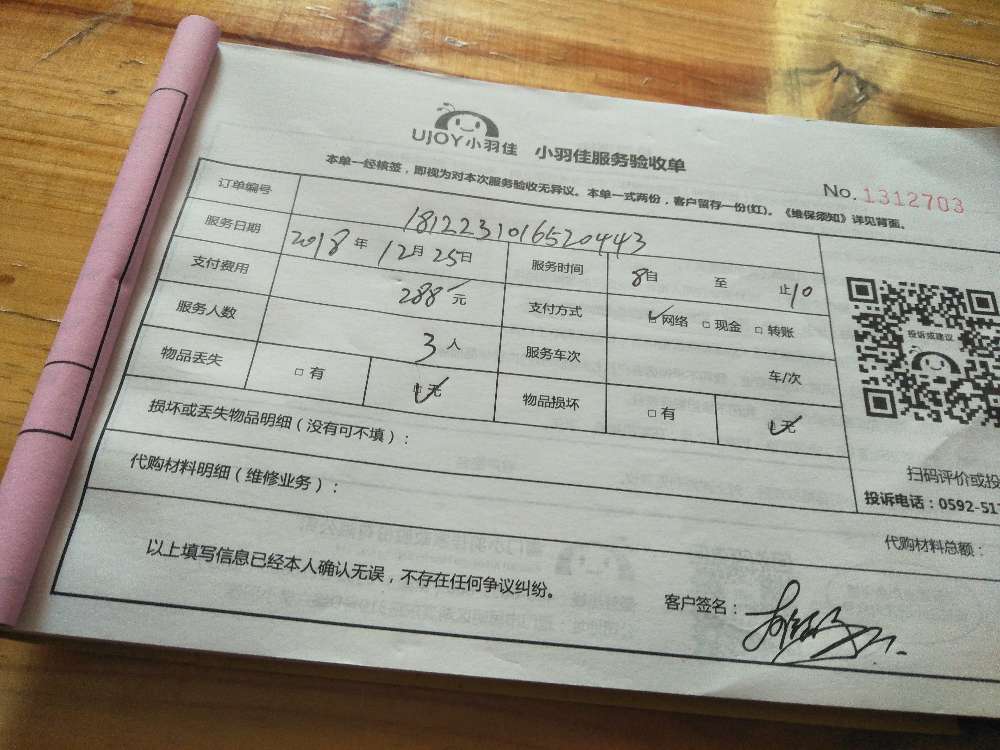 UJOY小羽佳 小羽佳服务验收单
No. 1312703
本单一经核签，即视为对本次服务验收无异议。本单一式两份，客户留存一份(红)。《维保须知》详见背面。
订单编号 1812231016520443
服务日期 2018年12月25日 服务时间 8自 至 止10
支付费用 288元 支付方式 网络 □现金 □转账
服务人数 3人 服务车次 车/次
物品丢失 □有 无 物品损坏 □有 无
投诉或建议
损坏或丢失物品明细（没有可不填）：
扫码评价或投
投诉电话：0592-517
代购材料明细（维修业务）：
代购材料总额：
以上填写信息已经本人确认无误，不存在任何争议纠纷。
客户签名：